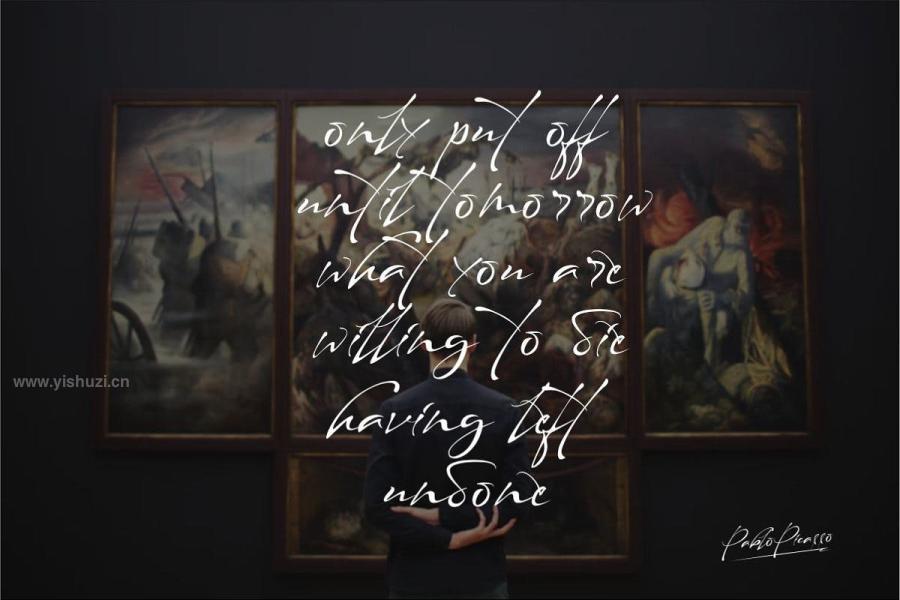 only put off
until tomorrow
what you are
willing to die
having left
undone
www.yishuzi.cn
Pablo Picasso